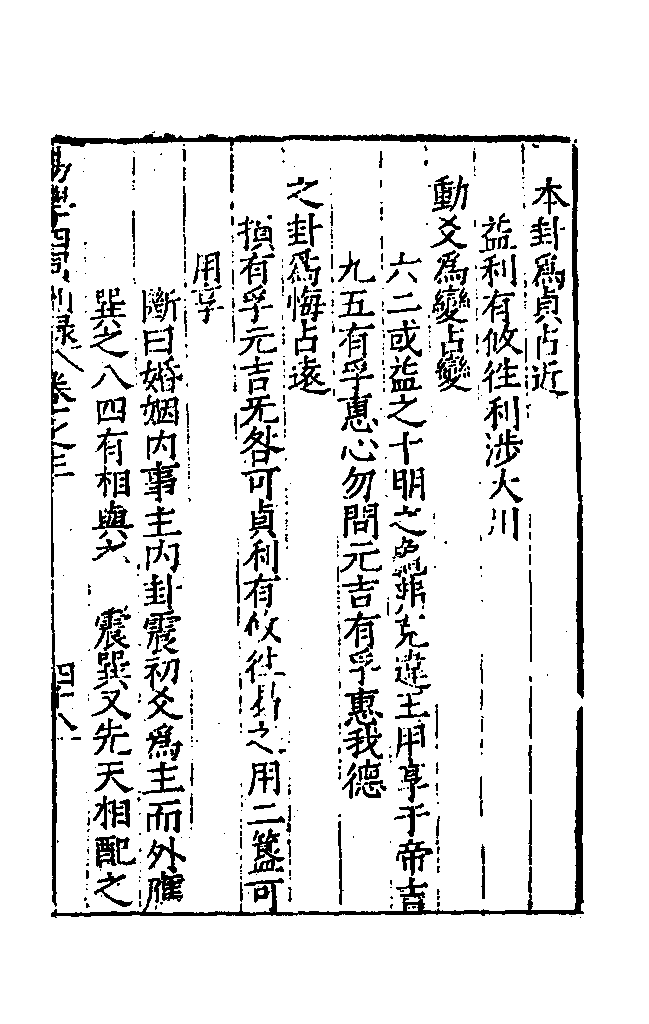 本卦爲貞占近
益利有攸往利涉大川
動爻爲變占變
六二或益之十朋之龜弗克違王用享于帝吉
九五有孚惠心勿問元吉有孚惠我德
之卦爲悔占遠
損有孚元吉无咎可貞利有攸往曷之用二簋可
用享
斷曰婚姻内事主内卦震初爻爲主而外應
巽之八四有相與 震巽又先天相配之
易學四同别録 卷之三 四十八